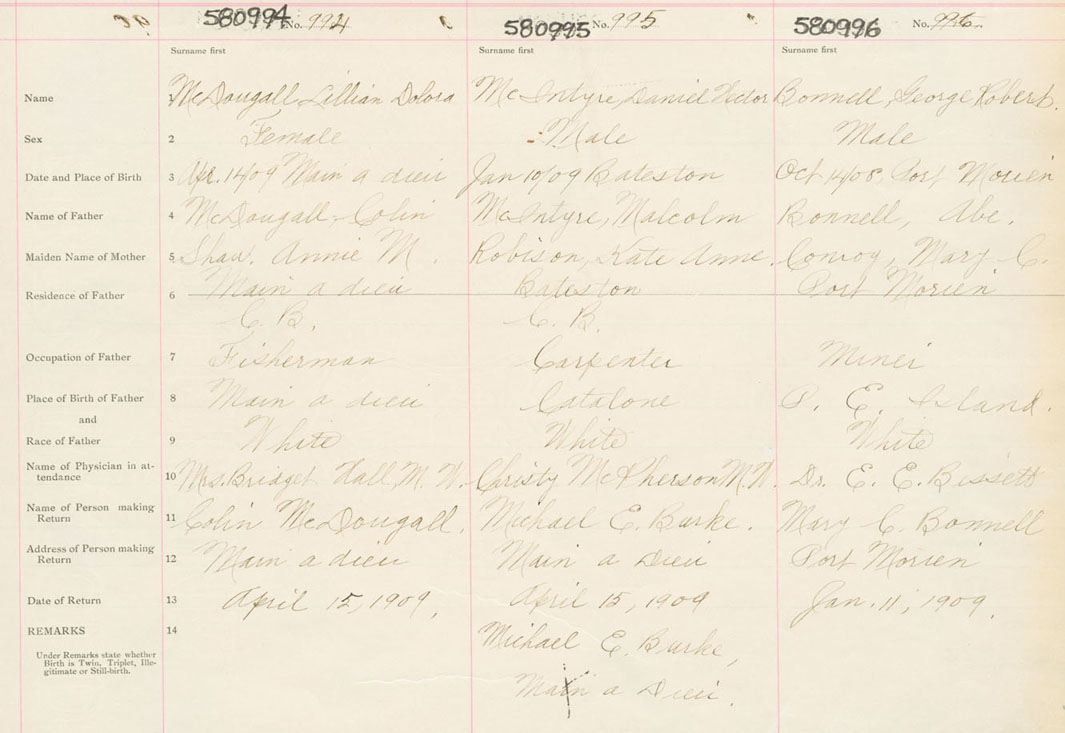 580994 No. 994 580995 No. 995 580996 No. 996
Surname first Surname first Surname first
Name 1 McDougall Lillian Dolora McIntyre, Daniel Victor Bonnell, George Robert.
Sex 2 Female Male Male
Date and Place of Birth 3 Apr. 14/09 Main a dieu Jan 10/09 Bateston Oct 14/08. Port Morien
Name of Father 4 McDougall, Colin McIntyre, Malcolm Bonnell, Abe.
Maiden Name of Mother 5 Shaw. Annie M. Robison, Kate Anne. Conroy, Mary C.
Residence of Father 6 Main a dieu Bateston Port Morien
C. B. C. B.
Occupation of Father 7 Fisherman Carpenter Miner
Place of Birth of Father 8 Main a dieu Catalone P. E. Island.
and
Race of Father 9 White White White
Name of Physician in at-
tendance 10 Mrs. Bridget Hall, M. W. Christy McPherson M. W. Dr. E. E. Bissett
Name of Person making
Return 11 Colin McDougall. Michael E. Burke. Mary C. Bonnell
Address of Person making
Return 12 Main a dieu Main a Dieu Port Morien
Date of Return 13 April 15, 1909. April 15, 1909 Jan. 11, 1909.
REMARKS 14 Michael E. Burke,
Under Remarks state whether
Birth is Twin, Triplet, Ille-
gitimate or Still-birth.
Main a Dieu.